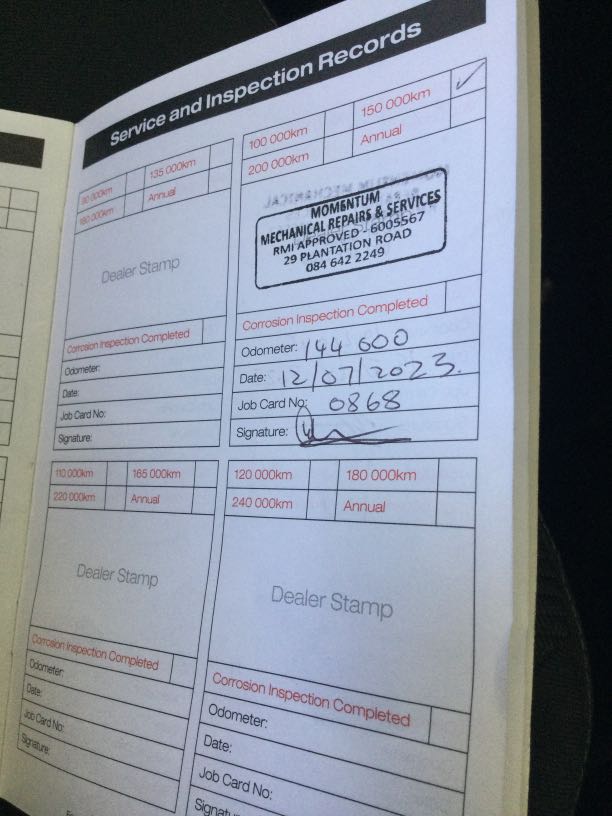 Service and Inspection Records
90 000km 135 000km
180 000km Annual
Dealer Stamp
Corrosion Inspection Completed
Odometer:
Date:
Job Card No:
Signature:
100 000km 150 000km ✓
200 000km Annual
MOMENTUM
MECHANICAL REPAIRS & SERVICES
RMI APPROVED - 6005567
29 PLANTATION ROAD
084 642 2249
Corrosion Inspection Completed
Odometer: 144 600
Date: 12/07/2023.
Job Card No: 0868
Signature:
110 000km 165 000km
220 000km Annual
Dealer Stamp
Corrosion Inspection Completed
Odometer:
Date:
Job Card No:
Signature:
120 000km 180 000km
240 000km Annual
Dealer Stamp
Corrosion Inspection Completed
Odometer:
Date:
Job Card No: